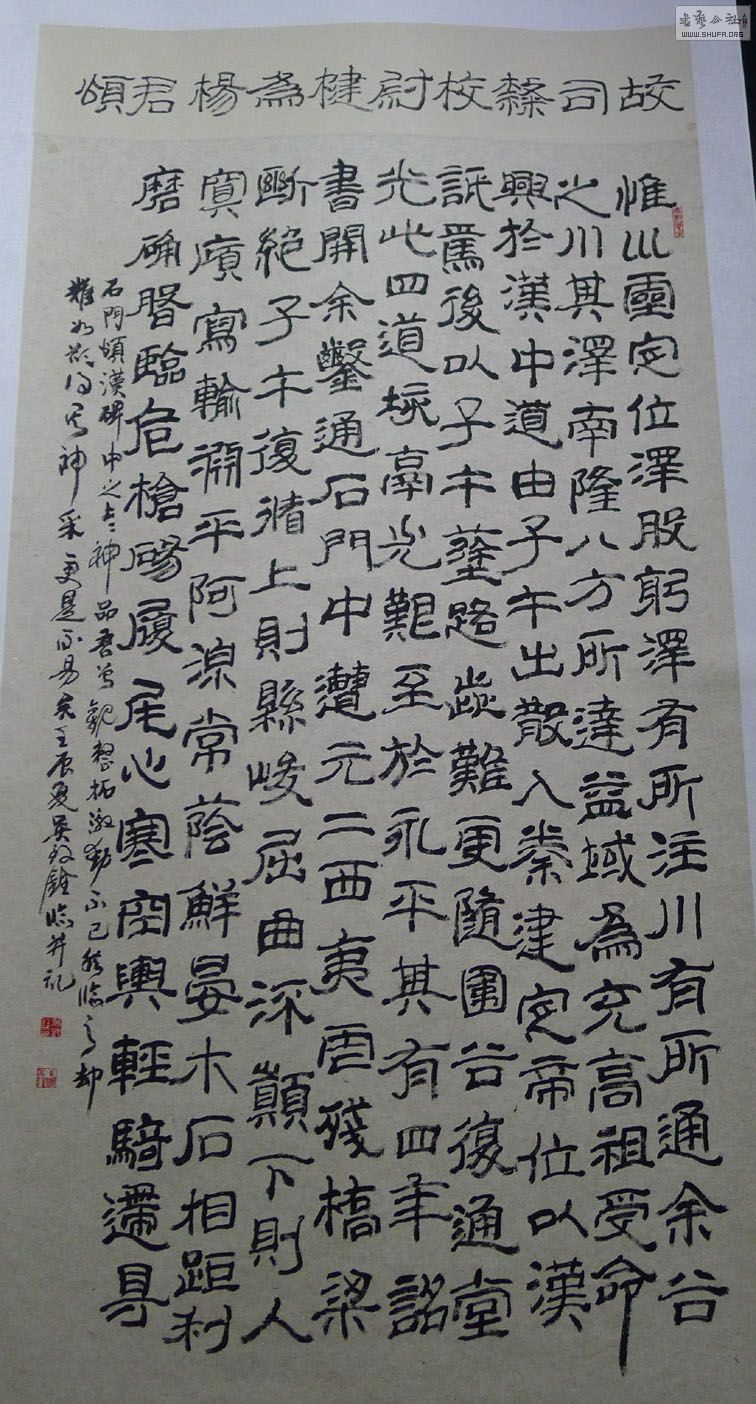 故司隸校尉楗為楊君頌
惟巛靈定位澤股躬澤有所注川有所通余谷
之川其澤南隆八方所達益域為充高祖受命
興於漢中道由子午出散入秦建定帝位以漢
詆焉後以子午塗路歰難更隨圍谷復通堂
光此四道垓鬲尤艱至於永平其有四年詔
書開余鑿通石門中遭元二西夷虐殘橋梁
斷絕子午復循上則縣峻屈曲深顛下則人
冥庼寫輸淵平阿湶常蔭鮮晏木石相距利
磨确磐臨危槍碭履尾心寒空輿輕騎遰㝵
石門頌漢碑中之神品吾曾觀整拓激動不已然臨之却
難神采更是不易矣壬辰夏吳臨并記
書藝公社
WWW.SHUFA.ORG